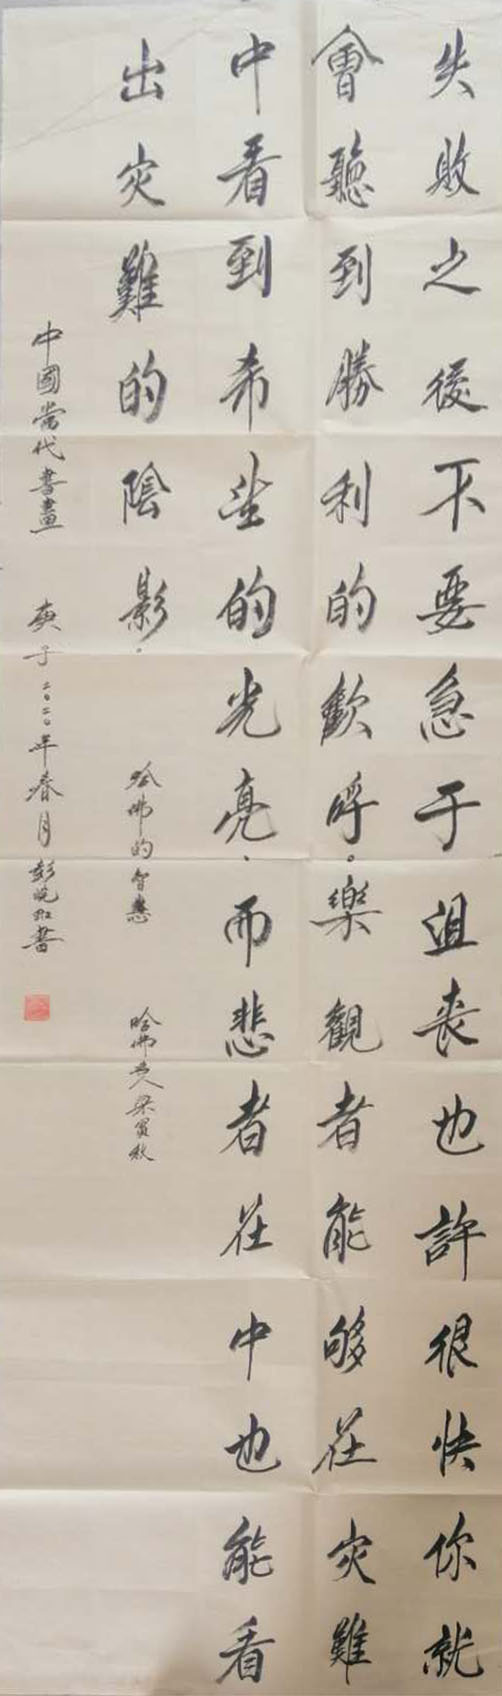 失敗之後不要急于沮喪也許很快你就
會聽到勝利的歡呼。樂觀者能够在灾難
中看到希望的光亮、而悲者在中也能看
出灾難的陰影.
哈佛的智慧
哈佛老人梁實秋
中國當代書畫
庚子二〇二〇年春月彭晓 書